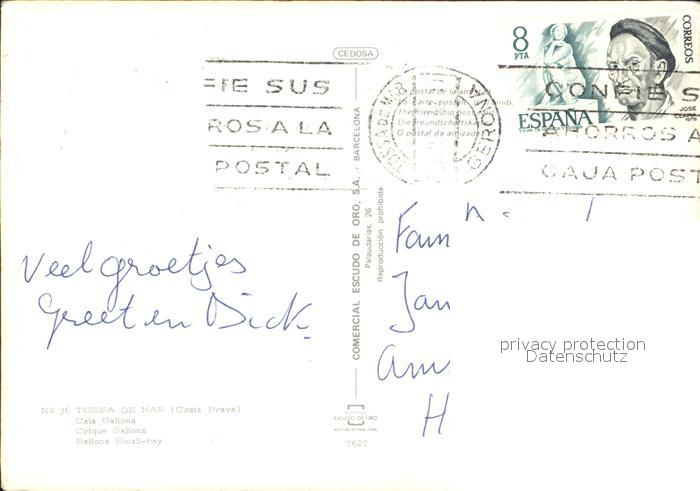 CEDOSA
8
PTA
CORREOS
ESPAÑA
JOSE
=IE SUS
ROS A LA
POSTAL
CONFIE S
A TORROS A
CAJA POST
TOSSA DE MAR
GERONA
La postal de la amistad
La carte-postale
The friendship post
Die freundschartska
O postal da amizade
COMERCIAL ESCUDO DE ORO, S.A. - BARCELONA
Palaudarias, 26
Reproducción prohibida
Veel groetjes
Greet en Dick.
Fam
Jan
Am
H
privacy protection
Datenschutz
Nº 36 TOSSA DE MAR (Costa Brava)
Cala Sallons
Crique Sallons
Sallons Small-bay
ESCUDO DE ORO
7627